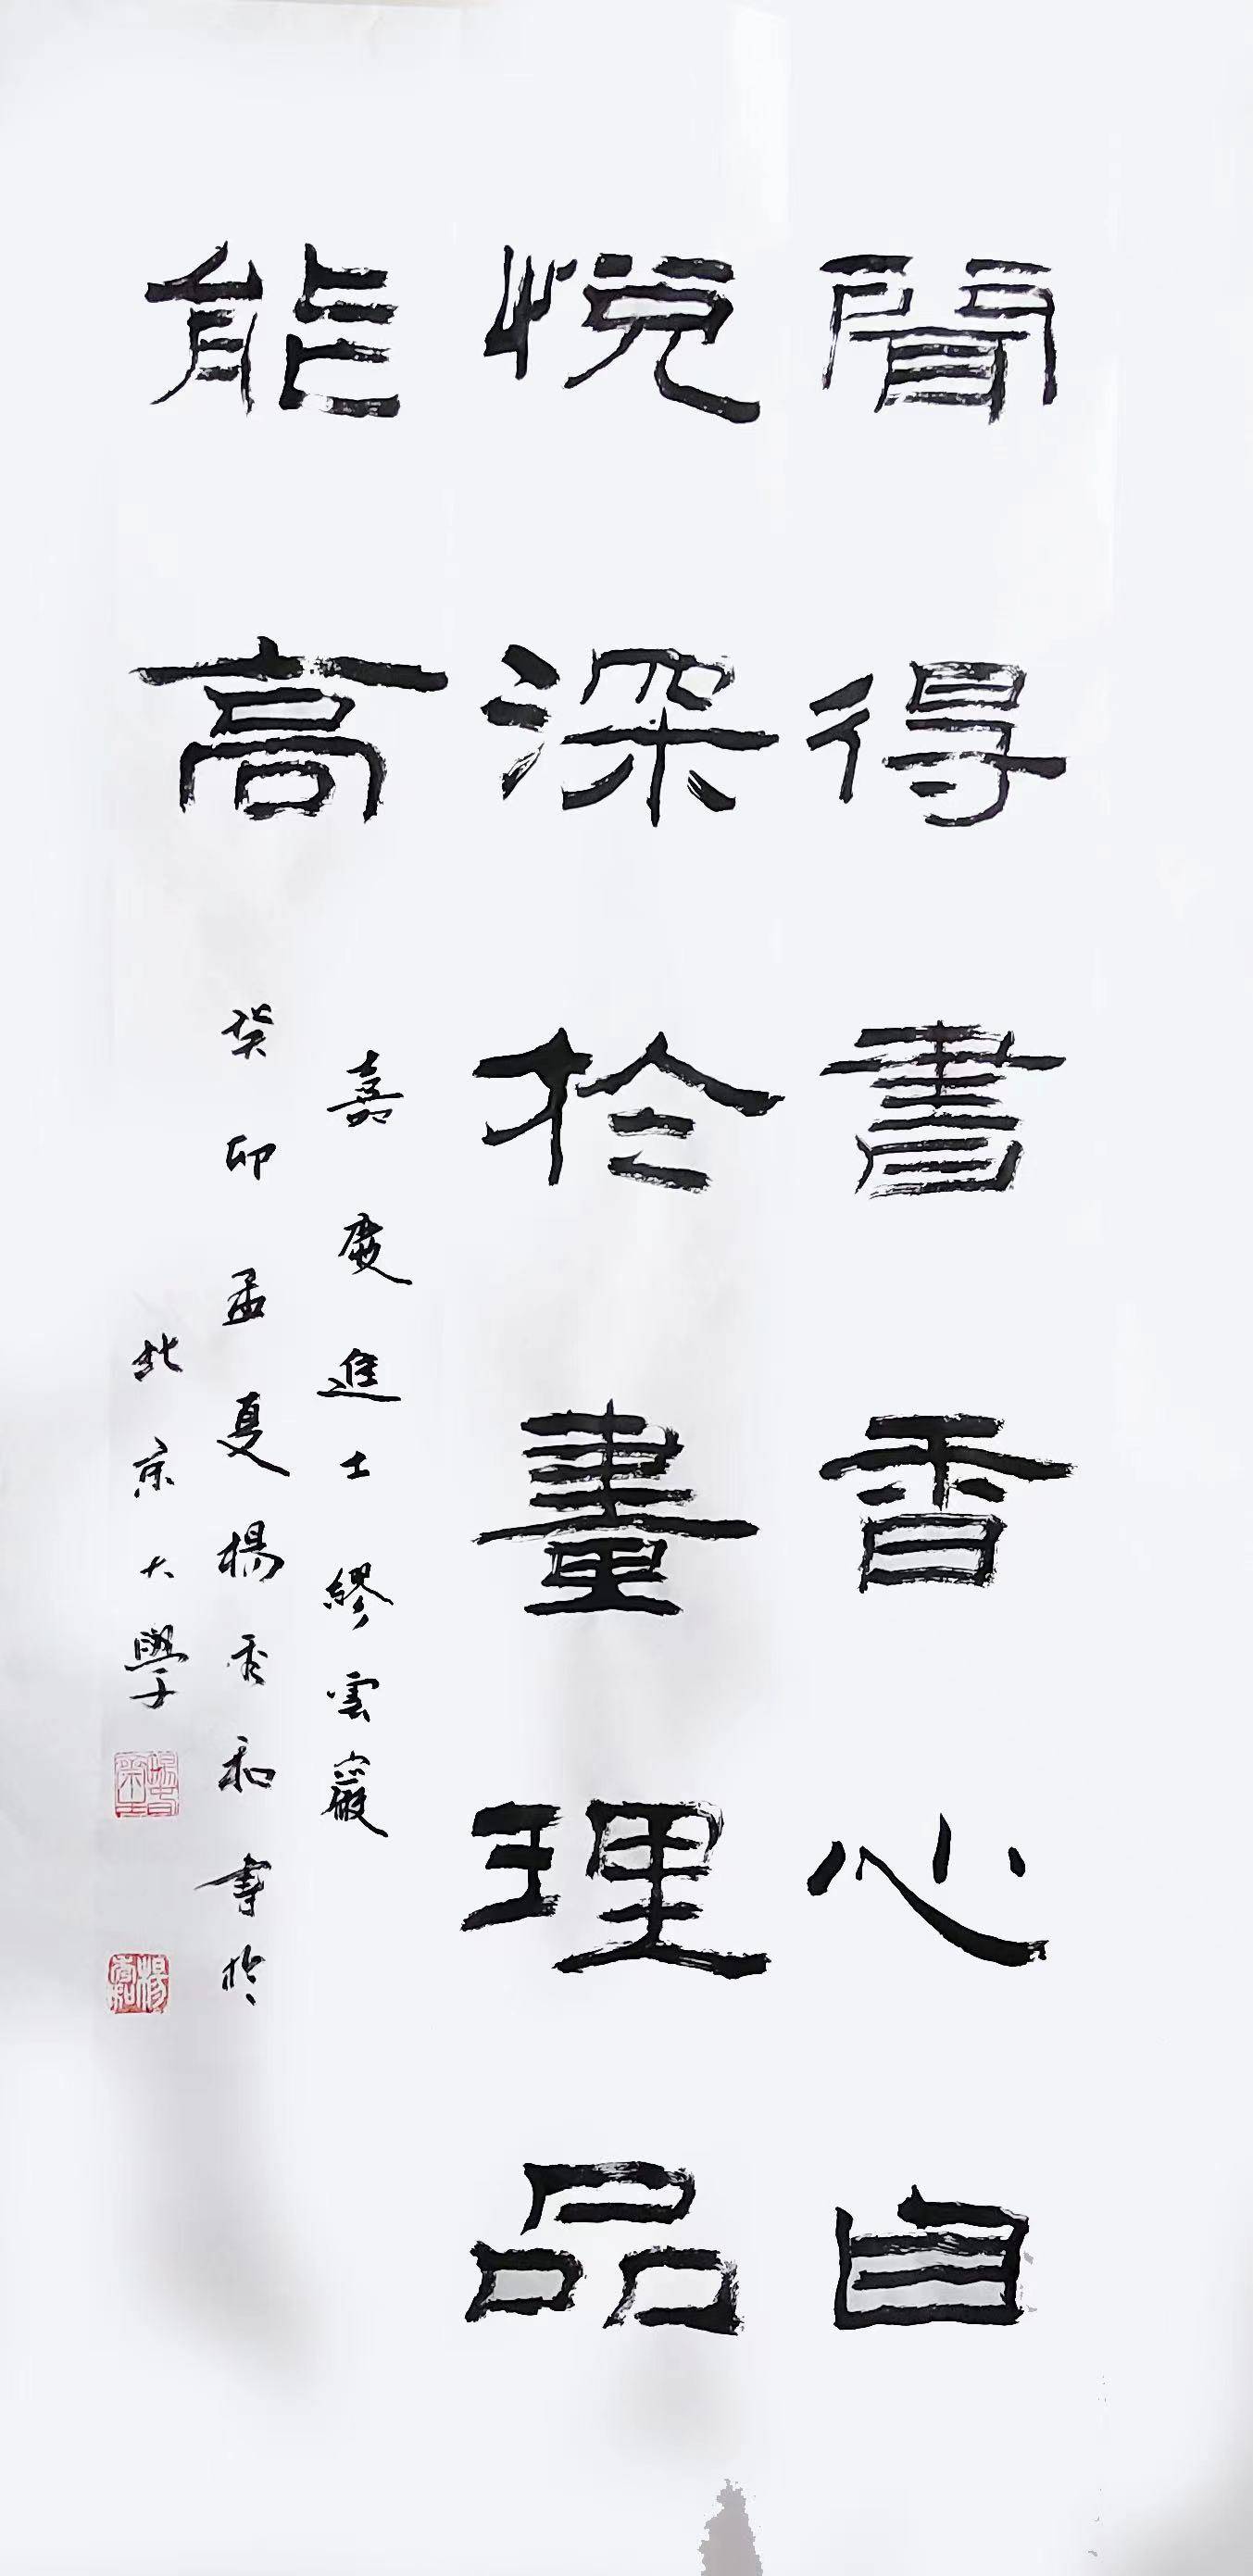 聞得書香心自
悅深於畫理品
能高
嘉慶進士繆雲巖
癸卯孟夏楊秀和書於
北京大學